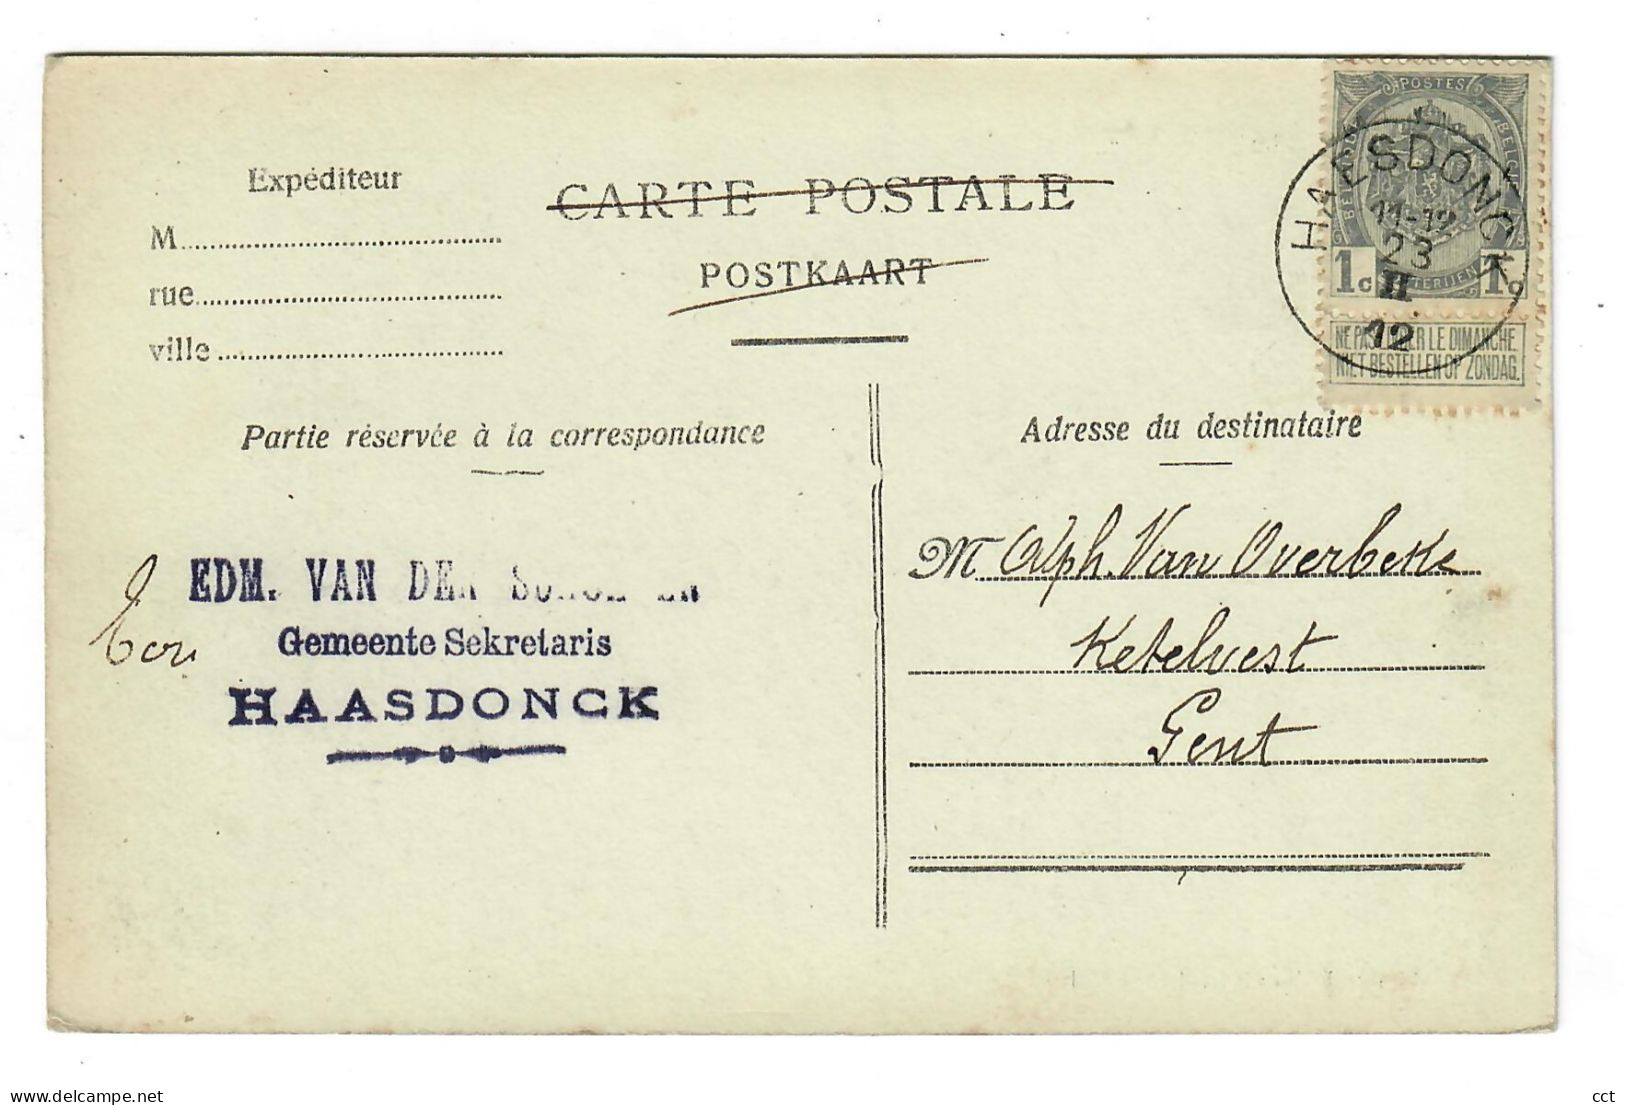 Expéditeur
M
rue
ville
CARTE POSTALE
POSTKAART
POSTES
BELGIQUE
1c 1c
NE PAS LIVRER LE DIMANCHE
NIET BESTELLEN OP ZONDAG.
HAESDONCK
11-12
23
II
12
Partie réservée à la correspondance
EDM. VAN DER
Gemeente Sekretaris
HAASDONCK
Adresse du destinataire
M Alph. Van Overbeke
Ketelvest
Gent
delcampe.net
cct